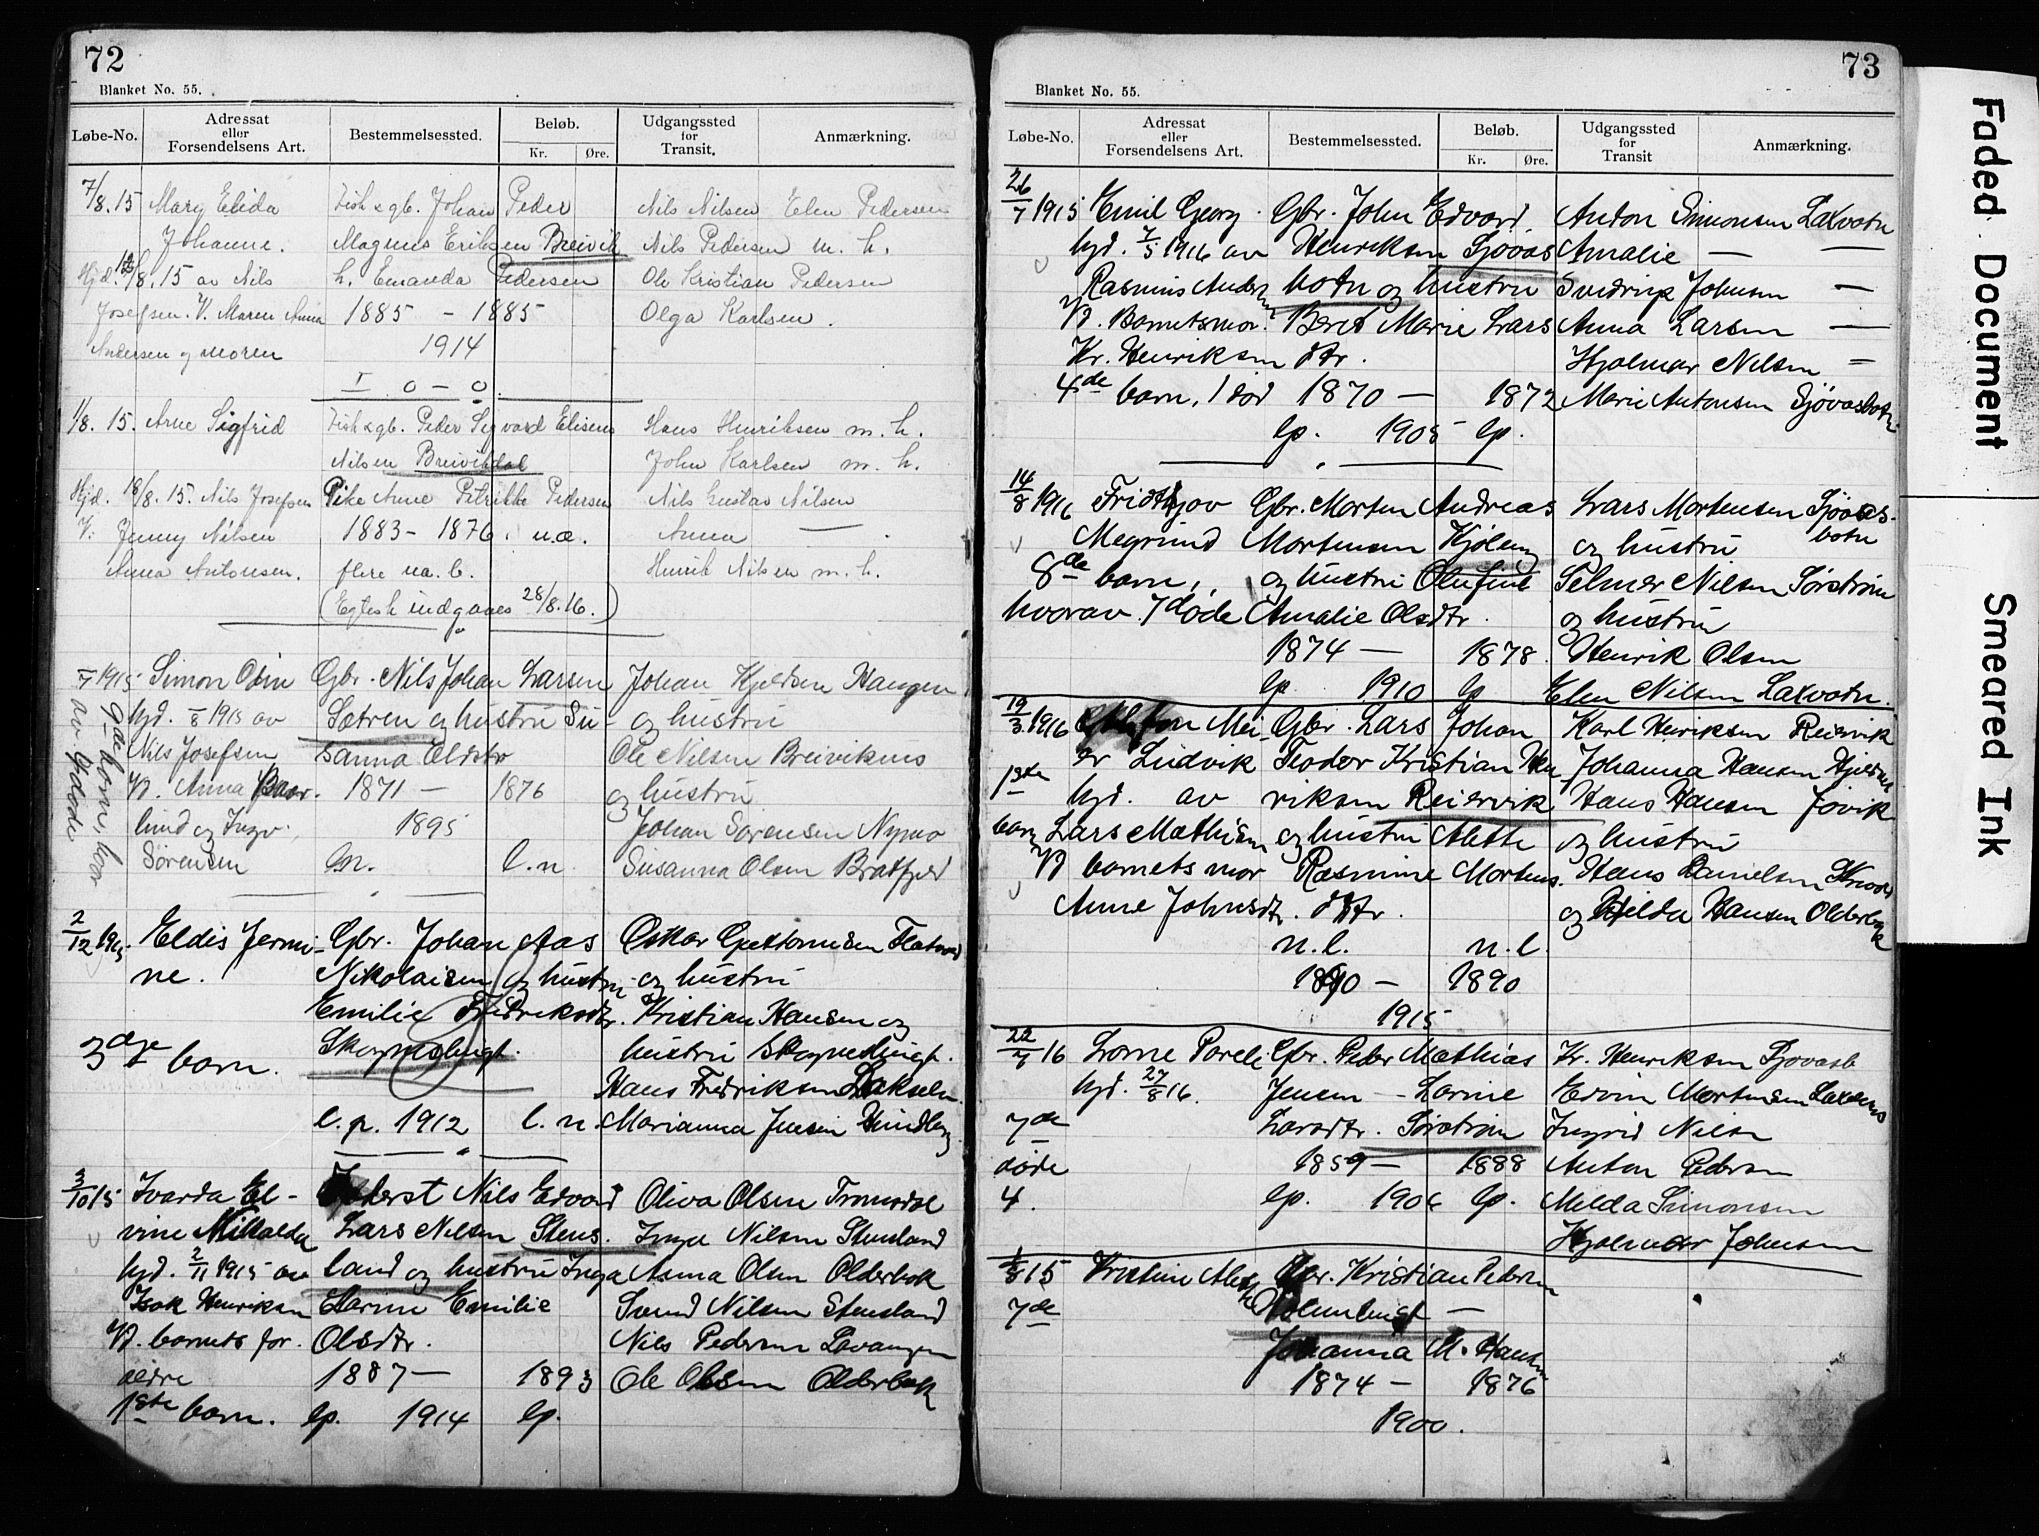 72
Blanket No. 55.
Løbe-No. Adressat eller Forsendelsens Art. Bestemmelsessted. Beløb. Kr. Øre. Udgangssted for Transit. Anmærkning.
7/8.15 Mary Elida Fisk & gb. Johan Peder Nils Nilsen Elen Pedersen
Johanne. Magnus Eriksen Breivik Nils Pedersen m. h.
Hjd. /8.15 av Nils h. Emanda Pedersen Ole Kristian Pedersen
Josefsen. V. Maren Anna 1885 – 1885 Olga Karlsen.
Andersen og moren 1914
I 0 – 0
1/8. 15. Arne Sigfrid Fisk & gb. Peder Sigvard Eliseus Hans Henriksen m. h.
Nilsen Breivikdal John Karlsen m. h.
Hjd. 18/8. 15. Nils Josefsen Pike Anne Petrikke Pedersen Nils Gustav Nilsen
V: Jenny Nilsen 1883 – 1876. u.æ. Anna —
Anna Antonsen. flere na. b. Henrik Nilsen m. h.
(Egtesk indgaaes 28/8.16.)
1915 Simon Odin Gbr. Nils Johan Larsen Johan Kjeldsen Haugen
hjd. 1915 av Sætren og hustru Su- og hustru
Nils Josefsen sanna Oldstr Ole Nilsen Breivikmo
V. Anna 1871 – 1876 og hustru
lund og Ingv. 1895 Johan Sørensen Nymo
Sørensen l.n. l.n. Susanna Olsen Bratfjeld
9de barn, hvor
av 4 døde
2/12 1915 Eldis Jermi- Gbr. Johan Aas Oskar Gustavsen
ne. Nikolaisen og hustru og hustru
Emilie Fredriksdtr. Kristian Hansen og
3dje barn. Skognesbugt. hustru Skognesbugt.
Hans Fredriksen Lakseln.
l.p. 1912 l.n. Marianna Jensen
3/10 15 Ivarda El- Inderst Nils Edvard Oliva Olsen
vine Mikalda Lars Nilsen Stens- Inga Nilsen Stensland
hjd. 2/11 1915 av land og hustru Inga Asma Olsen Olderbak
Isak Henriksen Larine Emilie Svend Nilsen Stensland
V. barnets for- Olsdtr. Nils Pedersen Lavangen
ældre 1887 – 1893 Ole Olsen Olderbak
1ste barn. lp. 1914 lp.
73
Blanket No. 55.
Løbe-No. Adressat eller Forsendelsens Art. Bestemmelsessted. Beløb. Kr. Øre. Udgangssted for Transit Anmærkning.
26/7 1915 Emil Georg Gbr. John Edvard Anton Simonsen Laxvatn
hjd. 7/5 1916 av Henriksen Sjøvas Amalie — —
Rasmus Anders botn og hustru Svedrup Johnsen —
V. Barnets mor. Beret Marie Lars Anna Larsen —
Kr. Henriksen dtr. Hjalmar Nilsen –
4de barn, 1 død 1870 – 1872 Marie Antonsen Sjøvasbotn
lp. 1905 lp.
14/8 1916 Fridtjov Gbr. Morten Andreas Lars Mortensen Sjøvas-
botn
Megrund Mortensen Kjøleng og hustru
8de barn, og hustru Olufine Selmer Nilsen Sørstrøm
hvorav 7 døde Amalie Olsdtr. og hustru
1874 – 1878. Henrik Olsen
lp 1910 lp Elen Nilsen Laxvatn.
19/3 1916 Mei- Gbr. Lars Johan Karl Henriksen Reiervik
er Ludvik Teodor Kristian Hen Johanna Hansen
1ste hjd. av riksen Reiervik Hans Hansen Jøvik
barn Lars Mathisen og hustru Alette og hustru
V barnets mor Rasmine Mortens. Hans Danielsen
Anne Johnsdtr. dtr. og Hilda Hansen Olderbak
n.l. n.l.
1890 – 1890
1915
22/7 16 Lorne Parele Gbr. Peder Mathias Kr. Henriksen Sjovasb
hjd. 27/8 16. Jensen – Larine Edvin Mortensen
7de Larsdtr. Sørstrøm Ingrid Nilsn
døde 1859 – 1888 Anton Pedersen
4. lp. 1906 lp. Melda Simonsen
Hjalmar Johnsen
1/8 15 Kristine Gbr. Kristian Petersen
7de Holmbugt —
Johanna M. Hansen
1874 – 1876
1900.
Faded Document
Smeared Ink